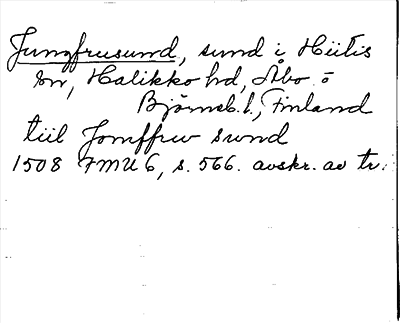 Jungfrusund, sund i Hiitis
sn, Halikko hd, Åbo o
Björneb. l., Finland
tiil Jomffrw swnd
1508 FMU 6, s. 566. avskr. av tr.